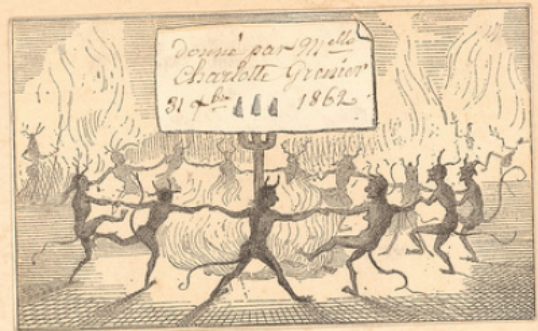 Donné par Melle
Charlotte Grenier
31 Xbre 1862